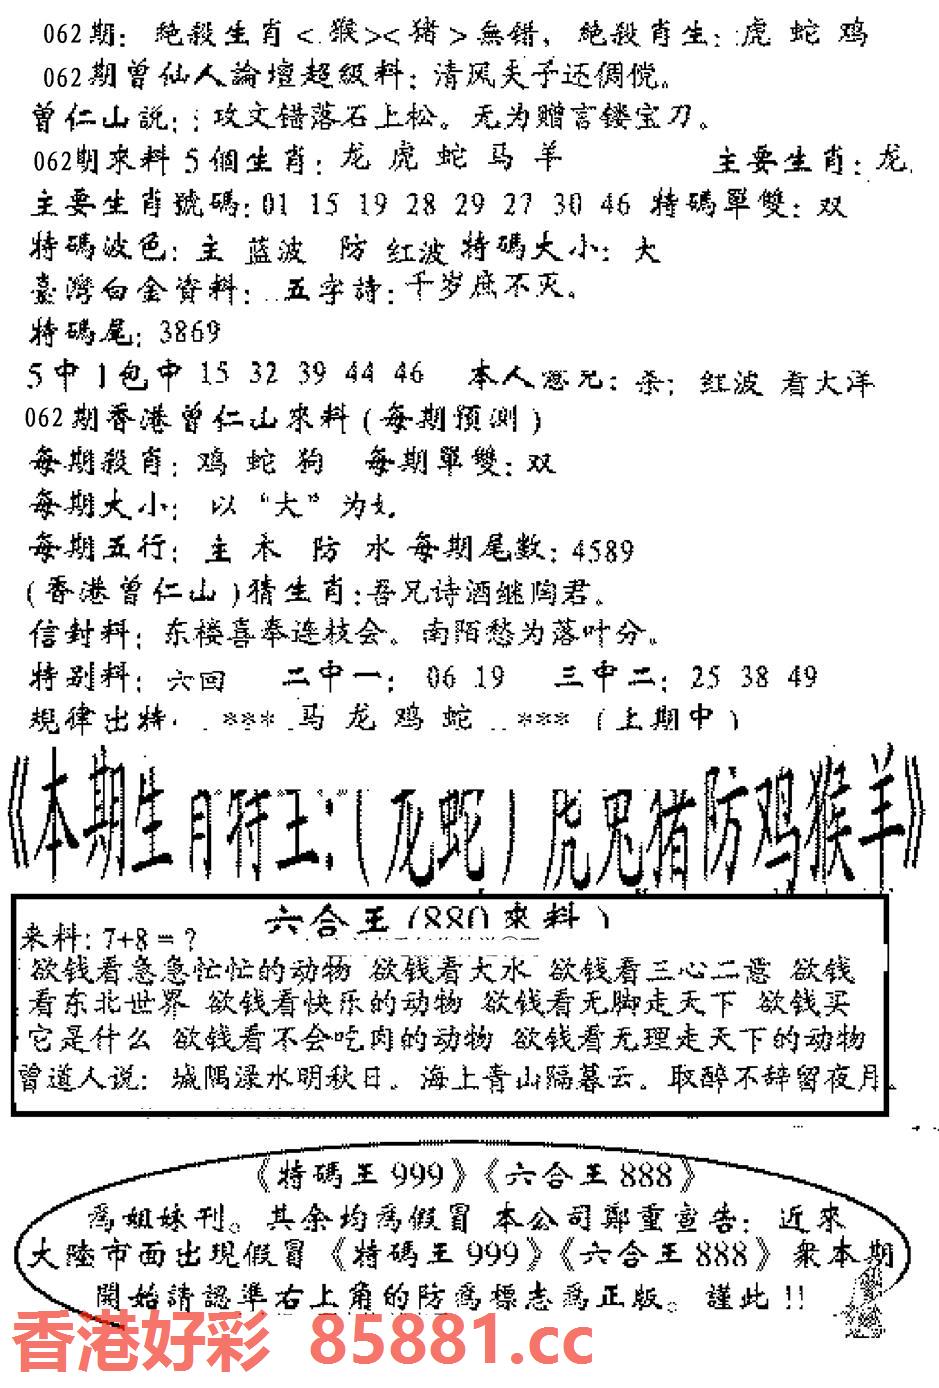 062期: 絶殺生肖<.猴><猪>無錯, 絶殺肖生: 虎 蛇 鸡
062期曾仙人論壇超級料: 清风夫子还倜傥。
曾仁山説: 攻文错落石上松。无为赠言镂宝刀。
062期來料 5個生肖: 龙 虎 蛇 马 羊 主要生肖: 龙
主要生肖號碼: 01 15 19 28 29 27 30 46 特碼單雙: 双
特碼波色: 主 蓝波 防 红波 特碼大小: 大
臺灣白金資料: 五字詩: 千岁庶不灭。
特碼尾: 3869
5中1包中 15 32 39 44 46 本人意见: 杀: 红波 看大洋
062期香港曾仁山來料(每期預測)
每期殺肖: 鸡 蛇 狗 每期單雙: 双
每期大小: 以“大”为
每期五行: 主 木 防 水 每期尾數: 4589
(香港曾仁山)猜生肖: 吾兄诗酒继陶君。
信封料: 东楼喜奉连枝会。南陌愁为落叶分。
特别料: 六回 二中一: 06 19 三中二: 25 38 49
規律出特 *** 马 龙 鸡 蛇 *** (上期中)
《本期生肖特王:(龙蛇)虎兔猪防鸡猴羊》
六合王(880來料)
来料: 7+8=?
欲钱看急急忙忙的动物 欲钱看大水 欲钱看三心二意 欲钱
看东北世界 欲钱看快乐的动物 欲钱看无脚走天下 欲钱买
它是什么 欲钱看不会吃肉的动物 欲钱看无理走天下的动物
曾道人说: 城隅渌水明秋日。海上青山隔暮云。取醉不辞留夜月
《特碼王999》《六合王888》
為姐妹刊。其余均為假冒 本公司鄭重宣告: 近來
大陸市面出現假冒《特碼王999》《六合王888》衆本期
開始請認準右上角的防為標志為正版。謹此!!
香港好彩 85881.cc